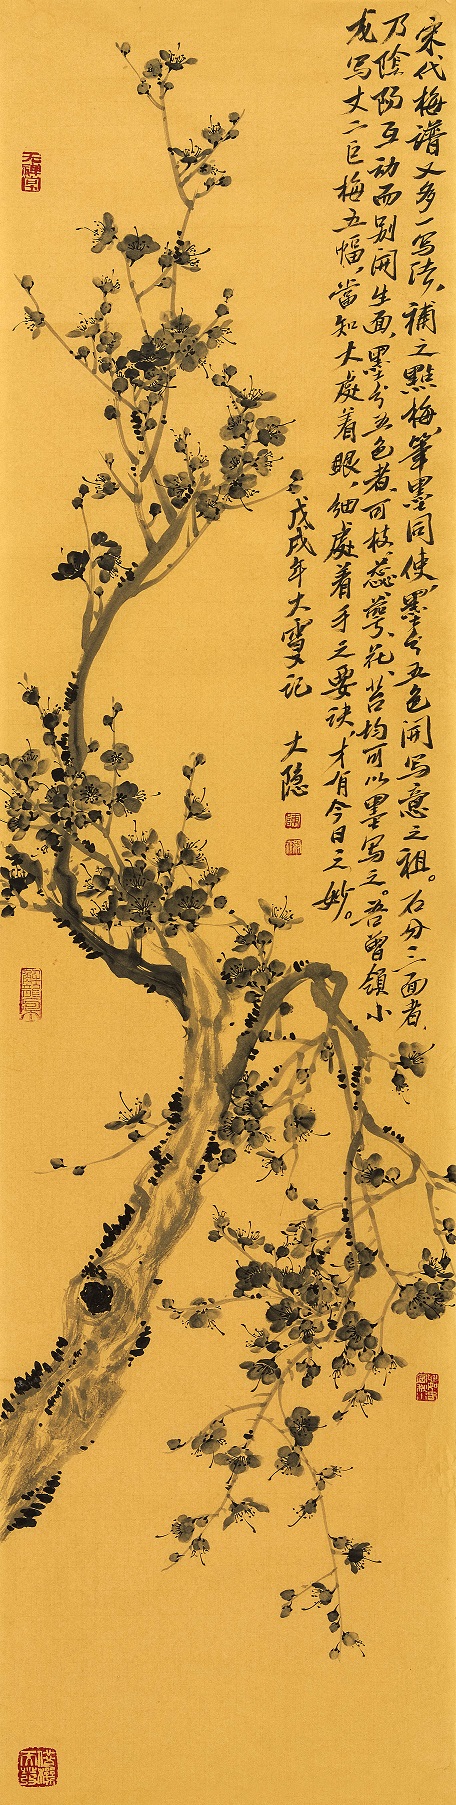 宋代梅谱又多一写法，補之點梅，筆墨同使，墨分五色開写意之祖。石分三面者，
乃陰陽互动而别開生面，墨分五色者，可枝、蕊、萼、花、苔均可以墨写之。吾曾領小
龙写丈二巨梅五幅，當知大處着眼，细處着手之要诀，才有今日之妙。
戊戌年大雪又记　大隐